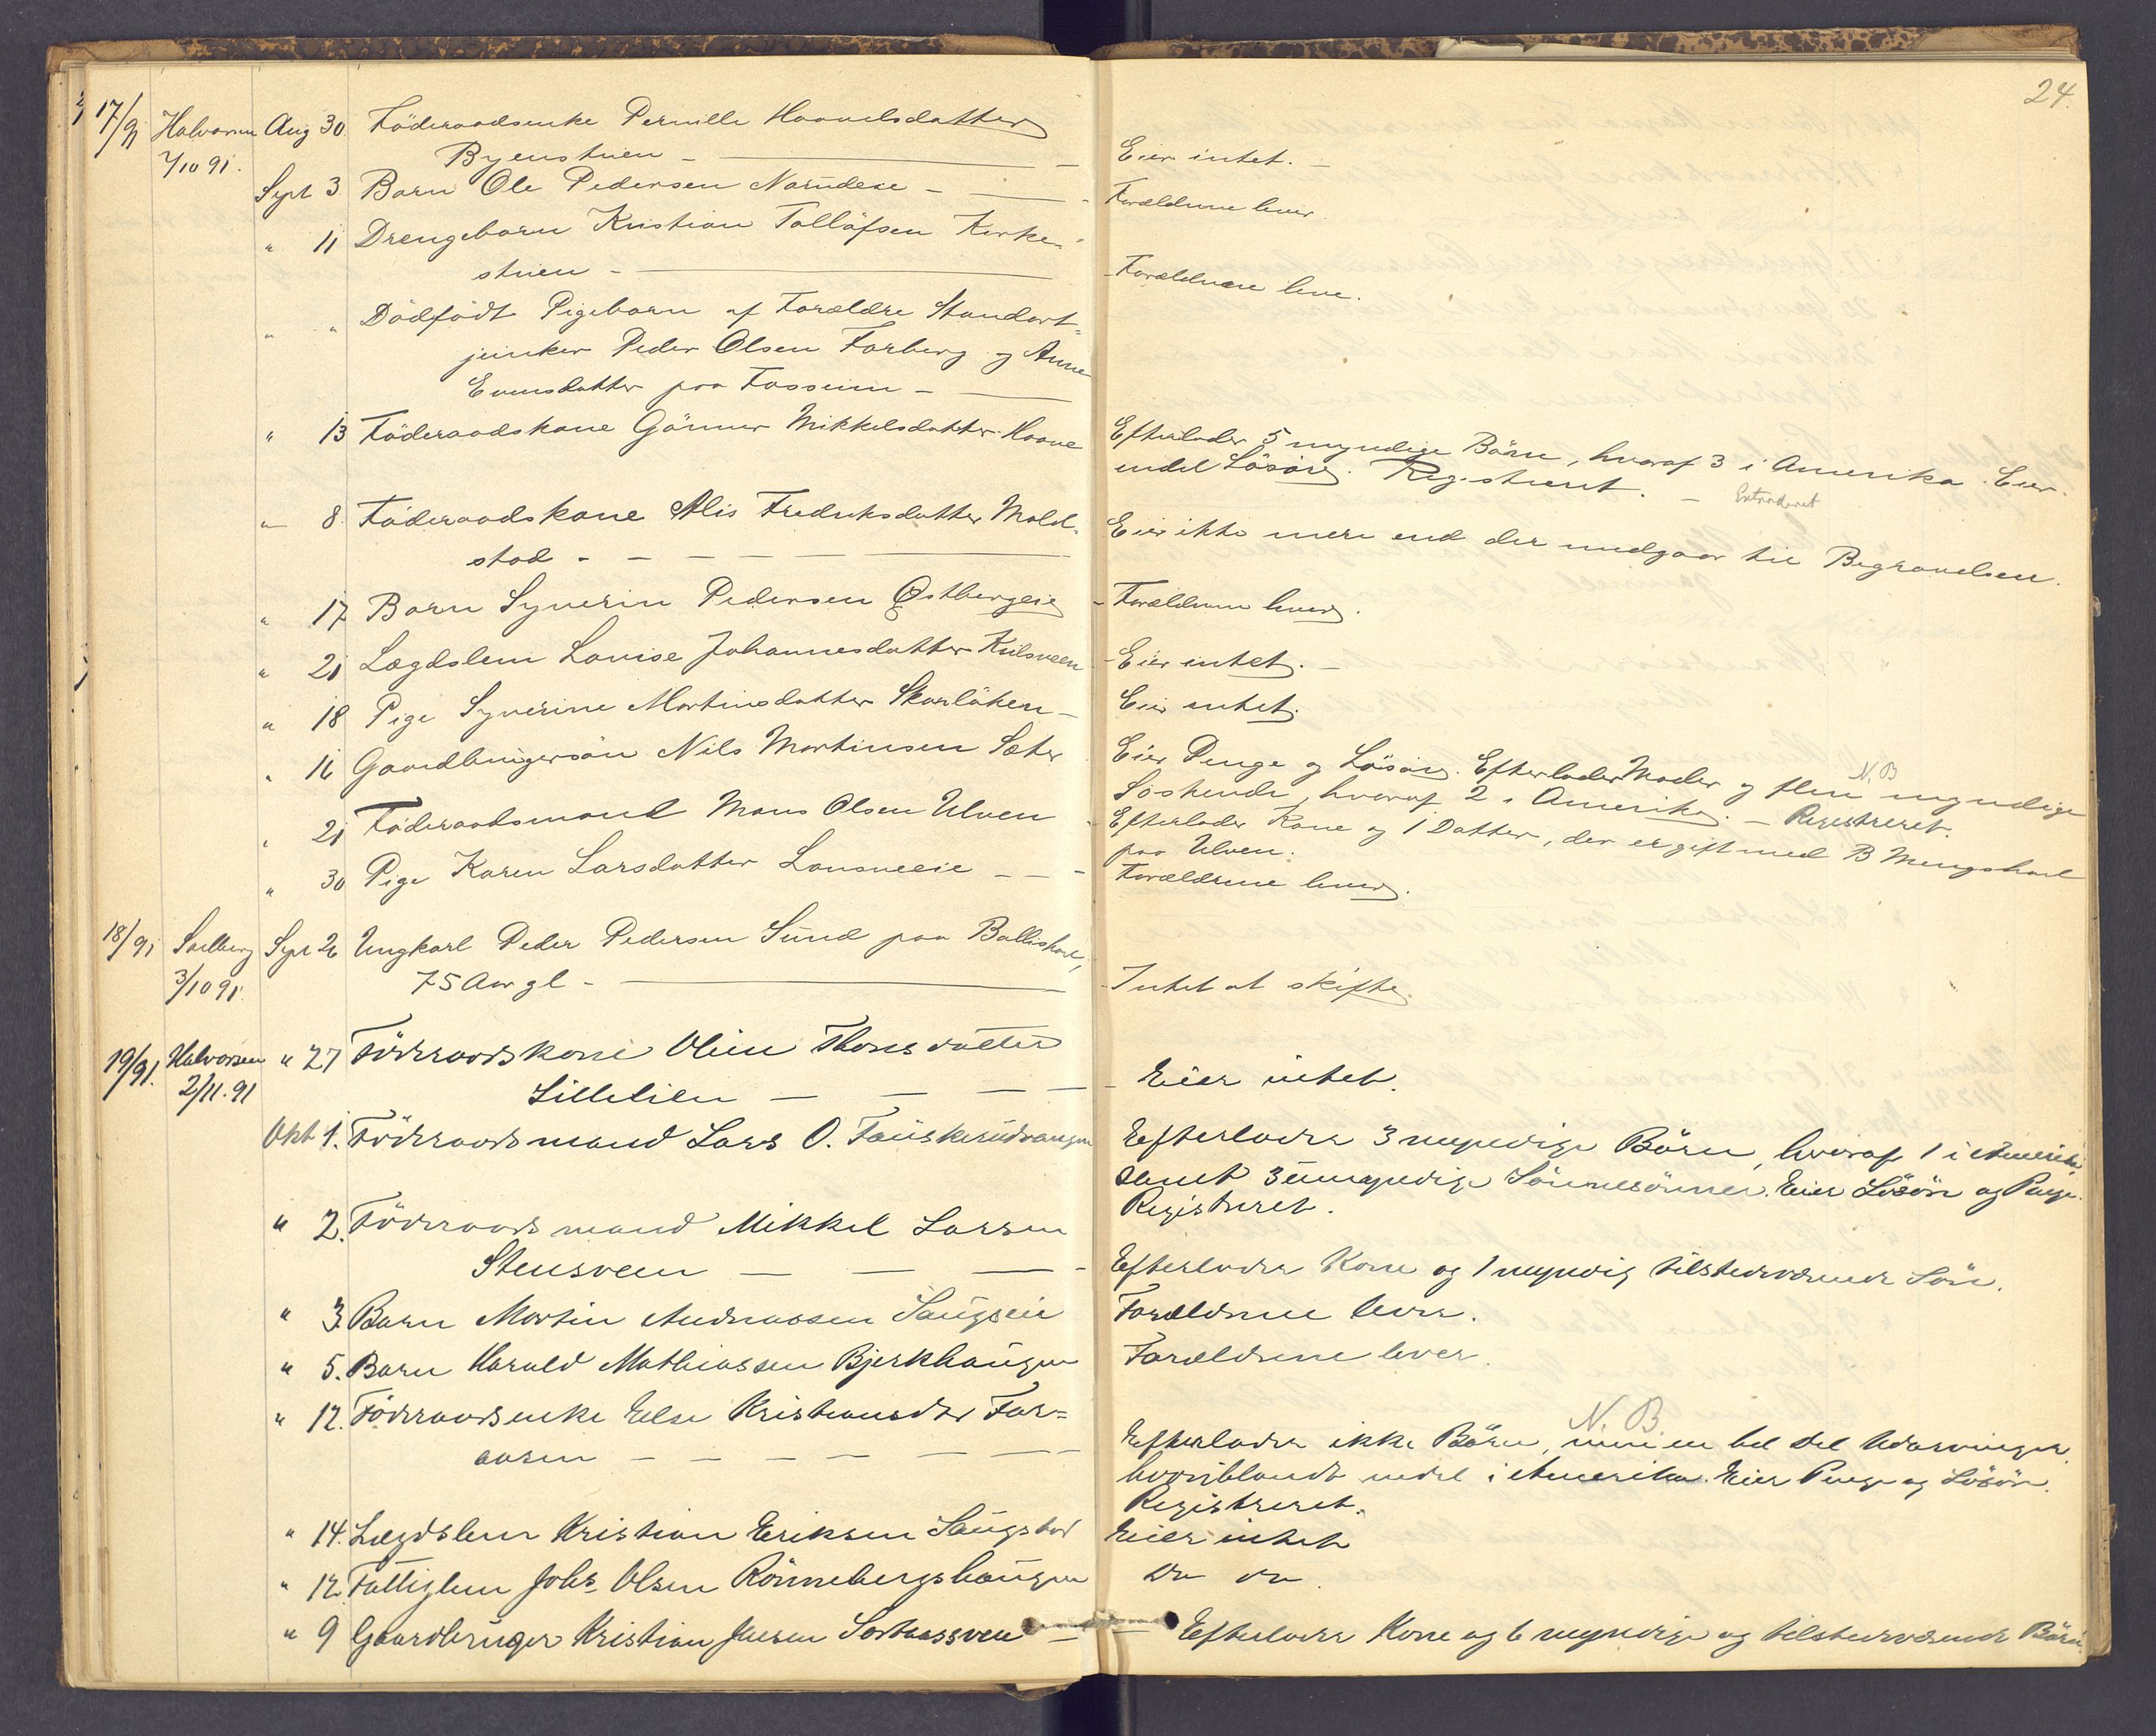 24.
17/91 Halvorsen Aug 30 Föderaadsenke Pernille Haavelsdatter
7/10 91. Byenstuen - Eier intet.
Sept 3 Barn Ole Pedersen - Forældrene lever
" 11 Drengebarn Kristian Tollöfsen Kirke-
stuen - Forældrene leve.
" " Dödfödt Pigebarn af Forældre Standart=
junker Peder Olsen Forberg og Anne
Evensdatter paa Fossum -
" 13 Föderaadskone Gönner Mikkelsdatter Haave Efterlader 5 myndige Börn, hvoraf 3 i Amerika. Eier
endel Lösöre. Registreret. - Extraderet
" 8 Föderaadskone Alis Fredriksdatter Mold-
stad - Eier ikke mere end der medgaar til Begravelsen.
" 17 Barn Syverin Pedersen Østbergeie - Forældrene lever.
" 21 Lægdslem Lovise Johannesdatter - Eier intet. -
" 18 Pige Syverine Martinsdatter - Eier intet.
" 16 Gaardbrugersön Nils Martinsen Sæter Eier Penge og Lösöre. Efterlader Moder og flere myndige
N.B
Söskende, hvoraf 2 i Amerika. - Registreret.
" 21 Föderaadsmand Mons Olsen Ulven - Efterlader Kone og 1 Datter, der er gift med B Mengshoel
paa Ulven.
" 30 Pige Karen Larsdatter - Forældrene lever.
18/91 Solberg Sept 26 Ungkarl Peder Pedersen Sund paa Ballishoel,
3/10 91. 75 Aar gl - Intet at skifte.
19/91. Halvorsen " 27 Föderaadskone Oline Thoresdatter
2/11.91 Lillelien - Eier intet.
Okt 1. Föderaadsmand Lars O. Fauskerudvangen Efterlader 3 myndige Börn, hvoraf 1 i Amerika
samt 3 umyndige Sönnesönner. Eier Lösöre og Penge.
Registreret.
" 2. Föderaadsmand Mikkel Larsen
Stensveen - Efterlader Kone og 1 myndig tilstedeværende Sön.
" 3. Barn Martin Andreassen Saugseie Forældrene lever.
" 5. Barn Harald Mathiassen Bjerkhaugen Forældrene lever.
" 12. Föderaadsenke Else Kristiansdtr For=
aasen - Efterlader ikke Börn, men en hel Del Udarvinger,
N. B.
hvoriblandt endel i Amerika. Eier Penge og Lösöre.
Registreret.
" 14. Lægdslem Kristian Eriksen Saugstad Eier intet
" 12. Fattiglem Johs Olsen Rönnebergshaugen Do do.
" 9 Gaardbruger Kristian Jensen - Efterlader Kone og 6 myndige og tilstedeværende Börn.